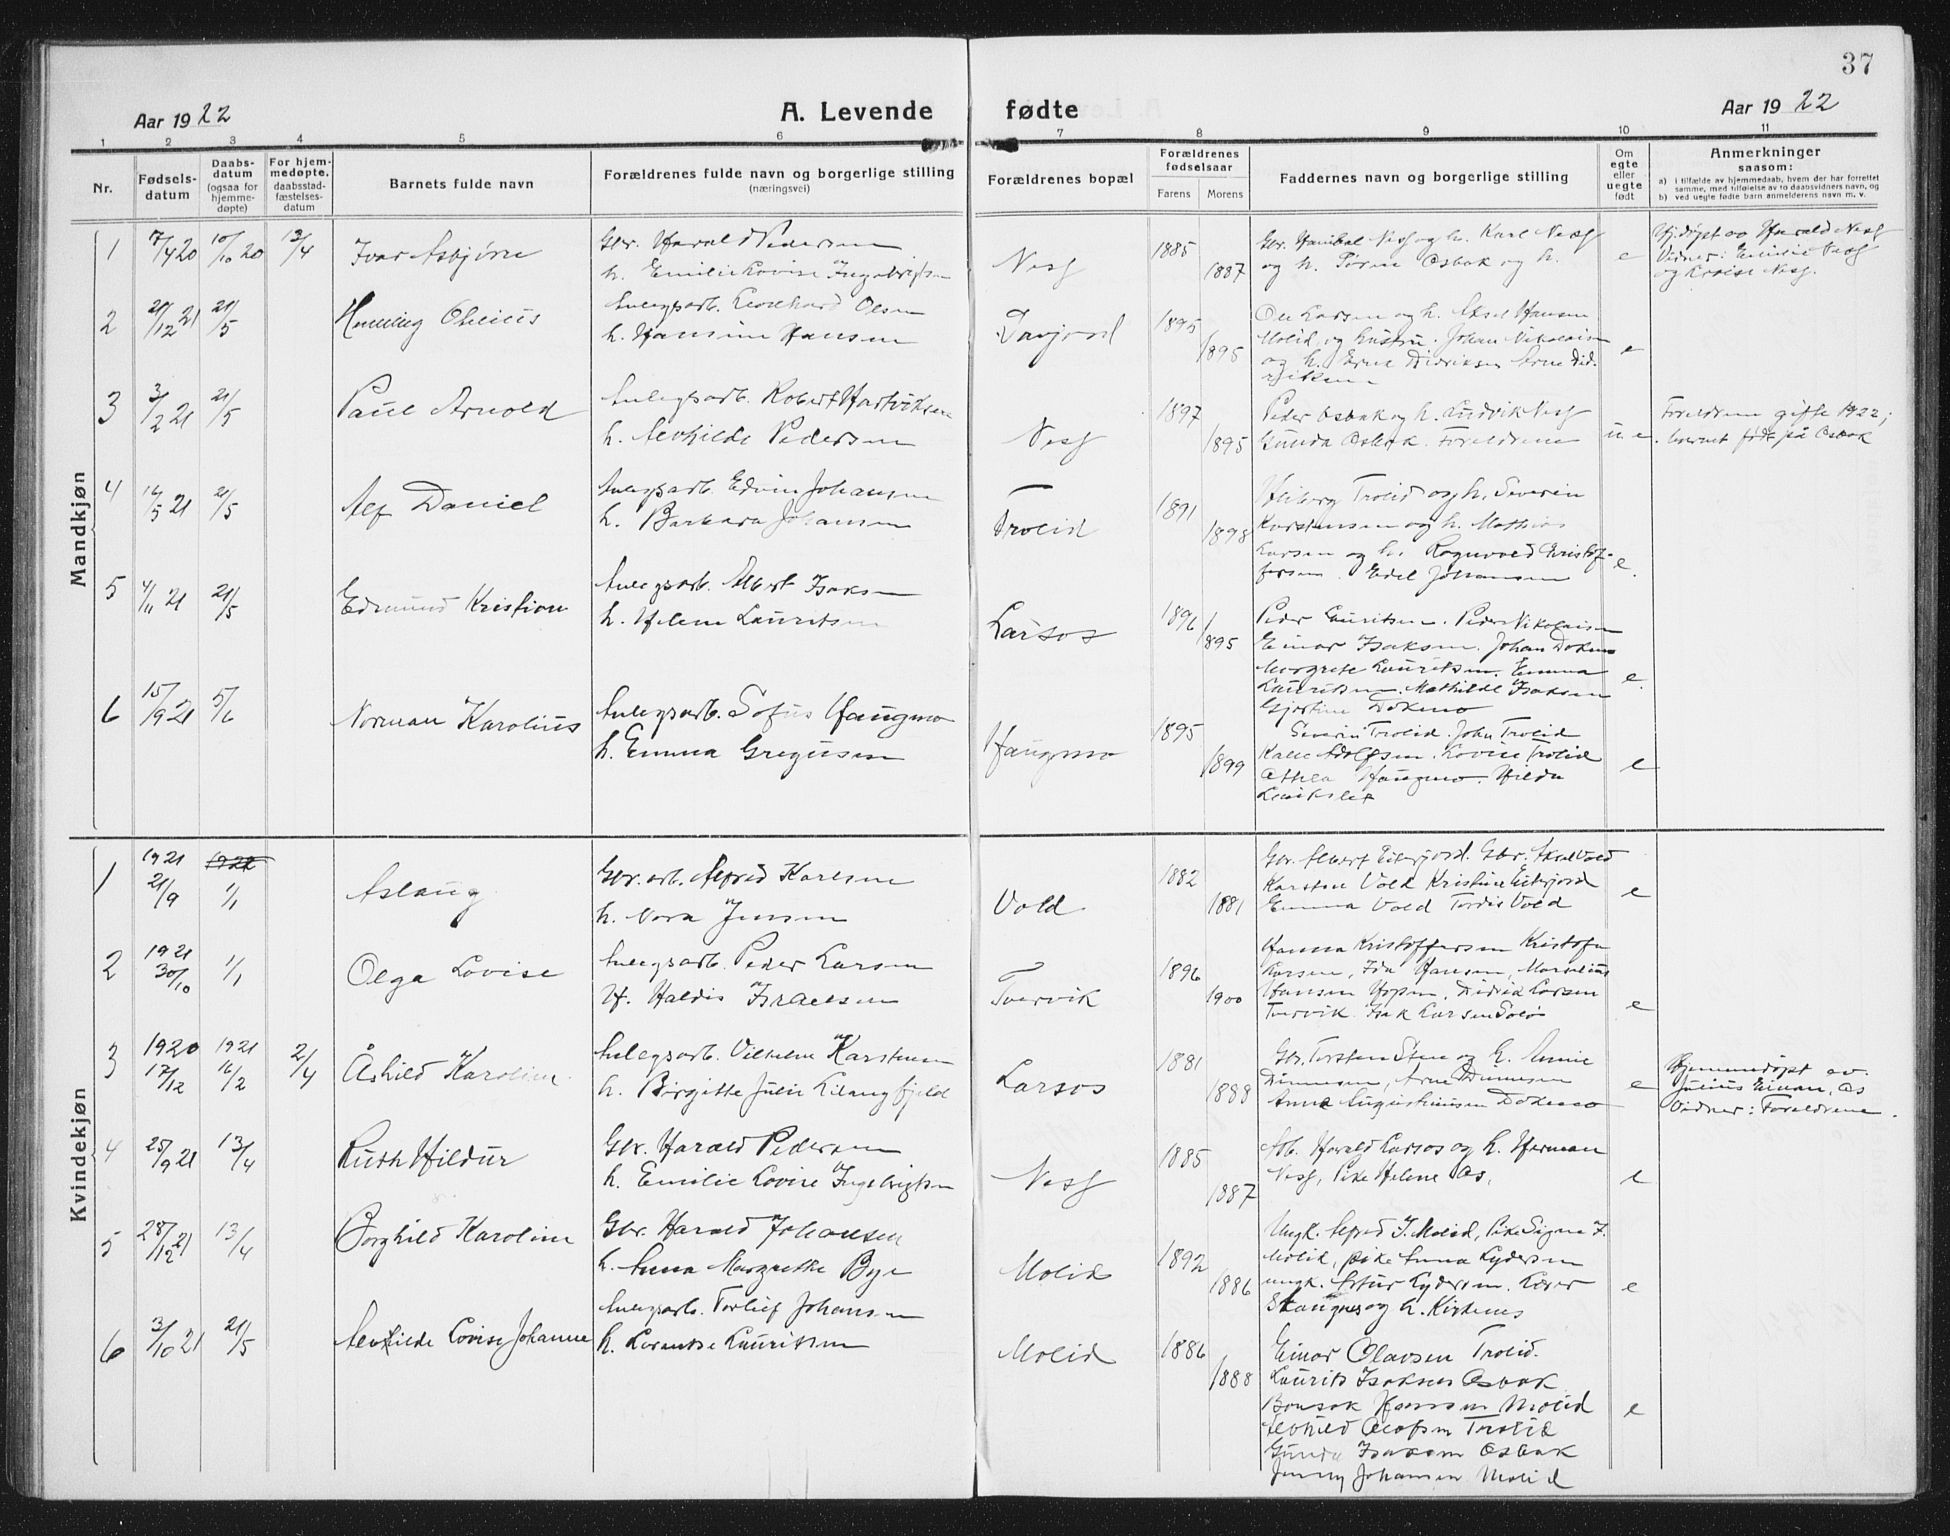 37
Aar 1922
A. Levende fødte
Aar 1922
1 2 3 4 5 6 7 8 9 10 11
Nr.
Fødsels-
datum
Daabs-
datum
(ogsaa for
hjemme-
døpte)
For hjem-
medøpte.
daabsstad-
fæstelses-
datum
Barnets fulde navn
Forældrenes fulde navn og borgerlige stilling
(næringsvei)
Forældrenes bopæl
Forældrenes
fødselsaar
Farens Morens
Faddernes navn og borgerlige stilling
Om
egte
eller
uegte
født
Anmerkninger
saasom:
a) i tilfælde av hjemmedaab, hvem der har forrettet
samme, med tilføielse av to daabsvidners navn, og
b) ved uegte fødte barn anmelderens navn m. v.
Mandkjøn
1 7/4 20 10/10 20 13/4 Ivar Asbjørn
Gbr. Harald Pedersen
h. Emilie Lovise Ingebrigtsen
Nesj 1885 1887
Gbr. Hanibal Nesj og h. Karl Nesj
og h. Søren Osbak og h.
e
Hj.døpt av Harald Nesj
Vidner: Emilie Nesj
og Lovise Nesj.
2 21/12 21 21/5 Henning Othelius
Anlegsarb. Leonhard Olsen
h. Hansine Hansen
Davjord 1895 1895
Ole Larsen og h. Aksel Hansen
Molid og hustru. Johan Nikolaisen
og h. Erne Didriksen Arne Did-
riksen
e
3 3/2 21 21/5 Paul Arnold
Anlegsarb. Robert Hartviksen
h. Alvhilde Pedersen
Nesj 1897 1895
Peder Osbak og h. Ludvik Nesj
Gunda Osbak. Foreldrene
u e.
Foreldrene gifte 1922;
barnet født på Osbak
4 16/5 21 21/5 Alf Daniel
Anlegsarb. Edvin Johansen
h. Barbara Johansen
Trolid 1891 1898
Hilberg Trolid og h. Severin
Karstensen og h. Mathias
Larsen og h. Ragnvald Kristof-
fersen. Edel Johansen
e.
5 4/11 21 21/5 Edmund Kristian
Anlegsarb. Albert Isaksen
h. Helene Lauritsen
Larsos 1896 1895
Peder Lauritsen. Peder Nikolaisen
Einar Isaksen. Johan Dokmo
Margrete Lauritsen. Emma
Lauritsen. Mathilde Isaksen
Gjertine Dokmo
e.
6 15/9 21 5/6 Norman Karolius
Anlegsarb. Sofus Haugmo
h. Emma Gregusen
Haugmo 1895 1899
Severin Trolid. John Trolid
Kalle Adolfsen. Lovise Trolid
Othea Haugmo. Hilda
e
Kvindekjøn
1 1921 21/9 1922 1/1 Aslaug
Gbr.arb. Alfred Karlsen
h. Nora Jensen
Vold 1882 1881
Gbr. Albert Eiterjord. Gbr. Aksel Vold
Karsten Vold Kristine Eiterjord
Emma Vold Tordis Vold
e
2 1921 30/10 1/1 Olga Lovise
Anlegsarb. Peder Larsen
H. Haldis Israelsen
Tvervik 1896 1900
Hanna Kristoffersen Kristofer
Larsen, Ida Hansen, Marselius
Hansen Hopen, Didrik Larsen
Tvervik. Isak Larsen
e
3 1920 17/12 1921 16/2 2/4 Åshild Karoline
Anlegsarb. Vilhelm Karstensen
h. Birgitte Julie Lilangfjeld
Larsos 1881 1888
Gbr. Torsten Sten og h. Annie
Dinnesen, Arne Dinnesen
Anna Augustinusen Dokmo
e
Hjemmedøpt av.
Julius Einan, Os
Vidner: Foreldrene.
4 25/9 21 13/4 Ruth Hildur
Gbr. Harald Pedersen
h. Emilie Lovise Ingebrigtsen
Nesj 1885 1887
Arb. Harald Larsos og h. Herman
Nesj, Pike Helene Os.
e
5 28/12 21 13/4 Borghild Karoline
Gbr. Harald Johansen
h. Anna Margrethe Bye
Molid 1892 1886
Ungk. Alfred J. Molid, Pike Signe J.
Molid, pike Anna Lydersen
ungk. Artur Lydersen. Lærer
Skaugnes og h. Kirknes
e
6 3/10 21 21/5 Alvhilde Lovise Johanne
Anlegsarb. Torleif Johansen
h. Lorentse Lauritsen
Molid 1886 1888
Einar Olavsen Trolid.
Laurits Isaksen Osbak
Bonsak Hansen Molid
Alvhild Olofsen Trolid
Gunda Isaksen Osbak
Jenny Johansen Molid
e